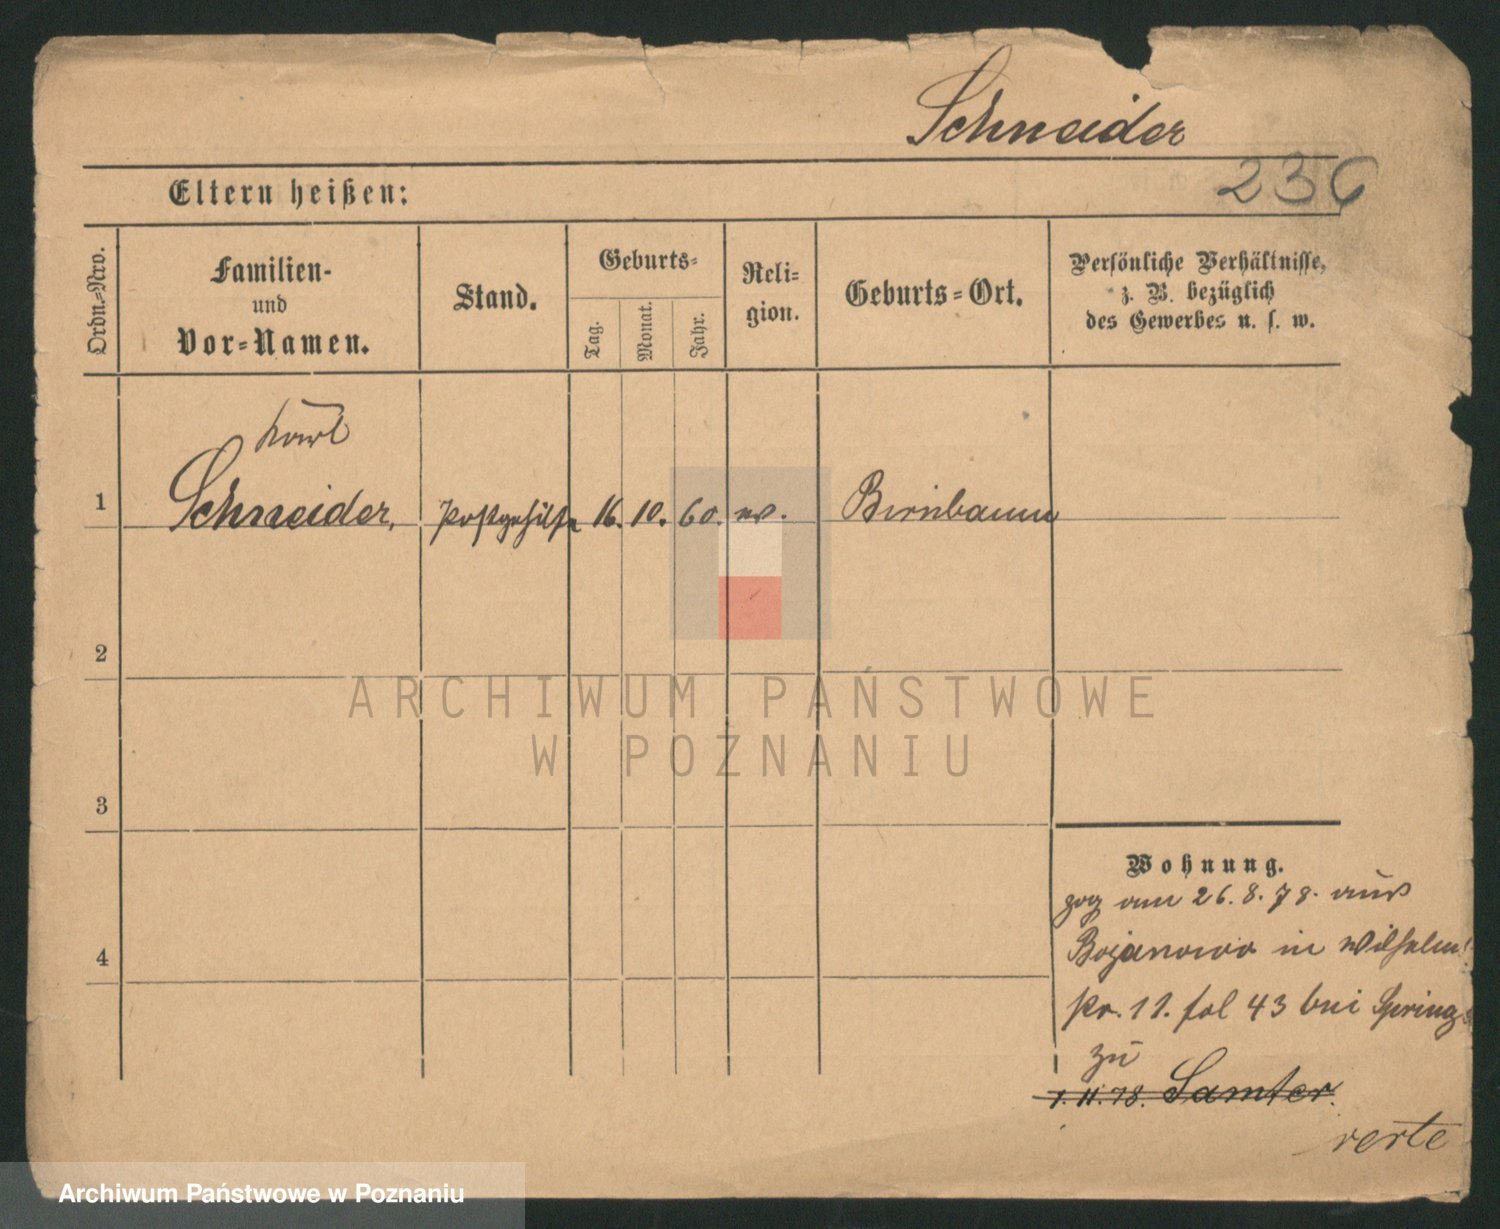 Schneider
236
Eltern heißen:
Ordn.-Nro.
Familien-
und
Vor-Namen.
Stand.
Geburts-
Tag.
Monat.
Jahr.
Reli-
gion.
Geburts-Ort.
Persönliche Verhältnisse,
z. B. bezüglich
des Gewerbes u. s. w.
Karl
1 Schneider, Postgehülfe 16. 10. 60. ev. Birnbaum
2
3
4
ARCHIWUM PAŃSTWOWE
W POZNANIU
Wohnung.
zog am 26. 8. 78. aus
Bojanowo in Wilhelm
11. fol 43 bei Spring
zu
1. 11. 78. Samter.
verte
Archiwum Państwowe w Poznaniu